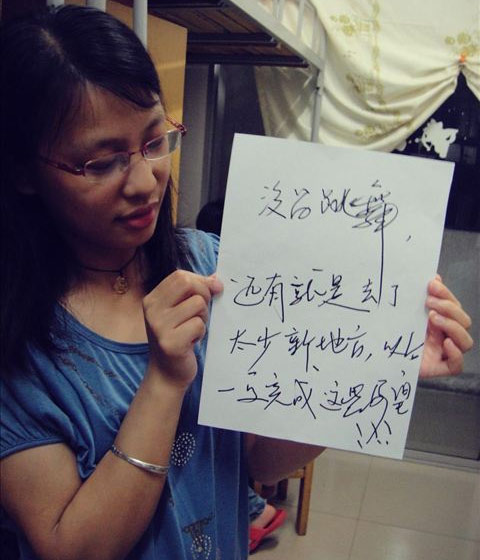 没跳舞,
还有就是去了
太少新地方,以后
一定完成这些愿望
!!!